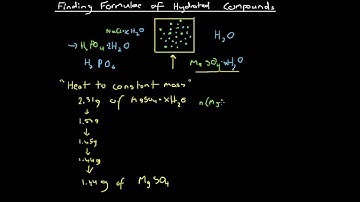 Finding Formulae of Hydrated Compounds
NaCl·xH₂O
→ H₃PO₄·2H₂O
H₃PO₄
H₂O
MgSO₄·xH₂O
"Heat to constant mass"
2.31g of MgSO₄·xH₂O n(Mg
↓
↓
1.45g
↓
1.44g
↓
1.44g of MgSO₄